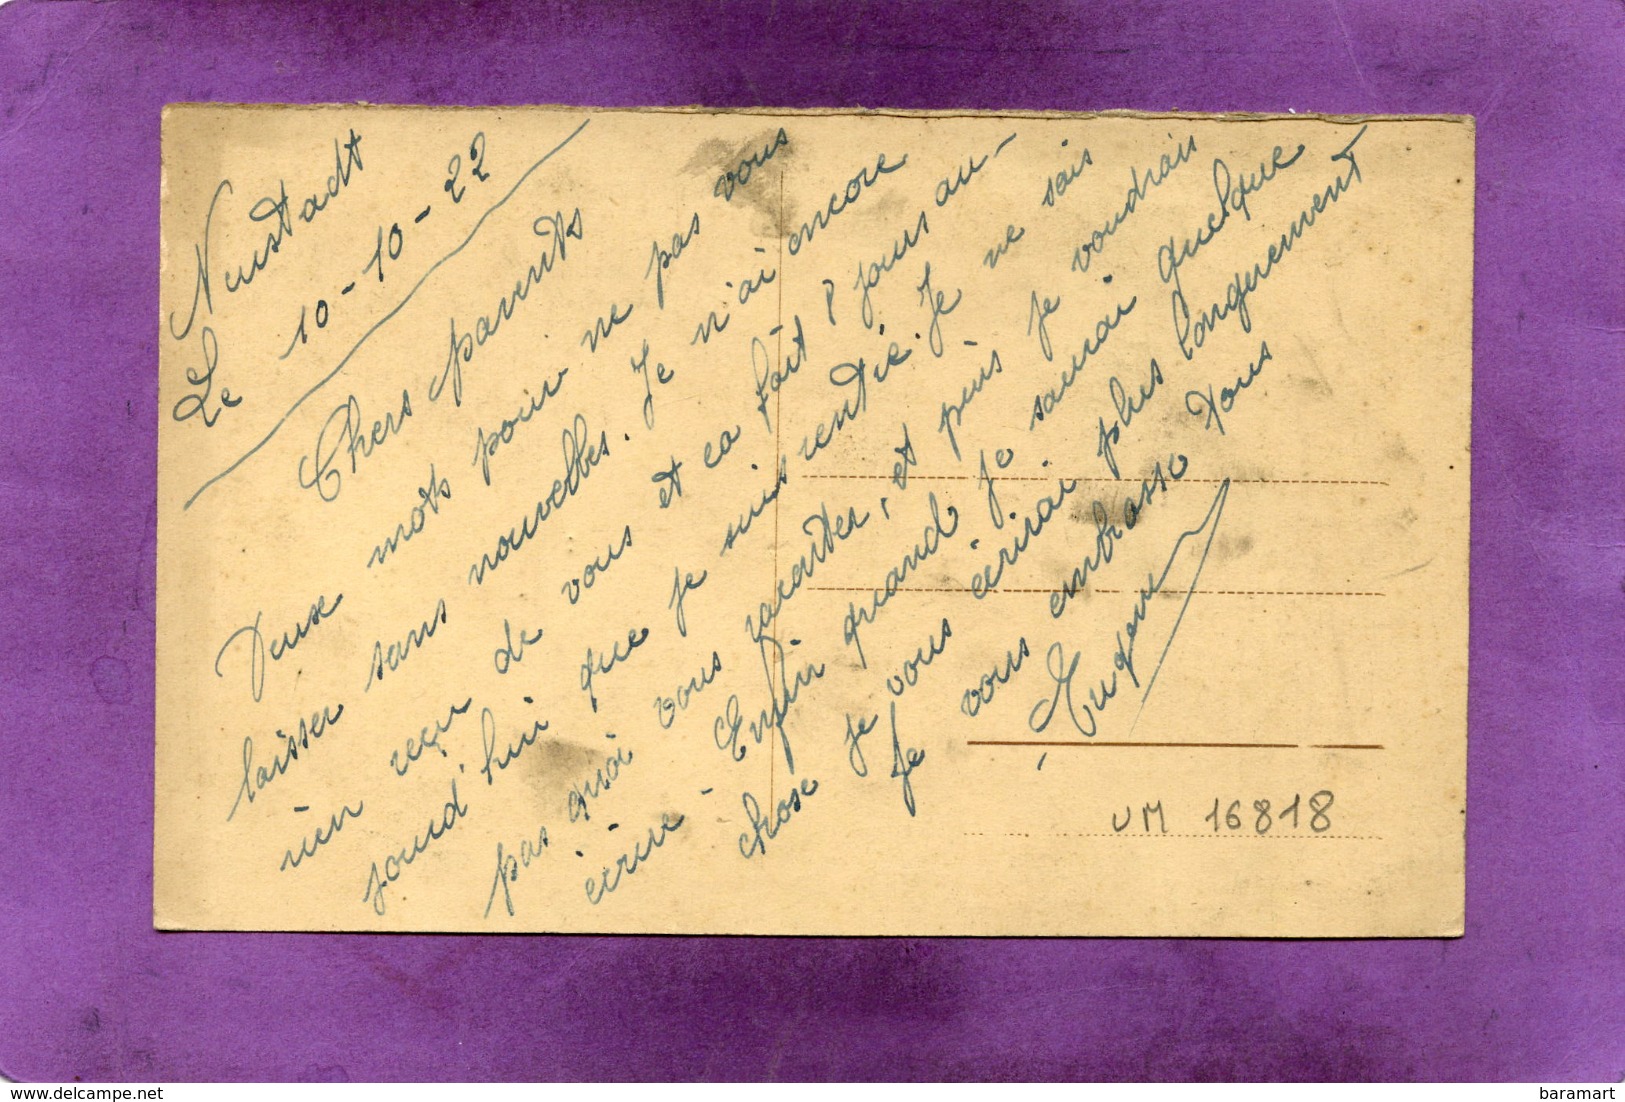 Nustadt
Le 10-10-22
Chers parents
Deux mots pour ne pas vous
laisser sans nouvelles. Je n'ai encore
rien reçu de vous et ca fait 8 jours au-
jourd'hui que je suis rentré. Je ne sais
pas quoi vous raconter, et puis je voudrais
écrire - Enfin quand je saurai quelque
chose je vous écrirai plus longuement
Je vous embrasse tous
Eugene
UM 16818
delcampe.net
baramart